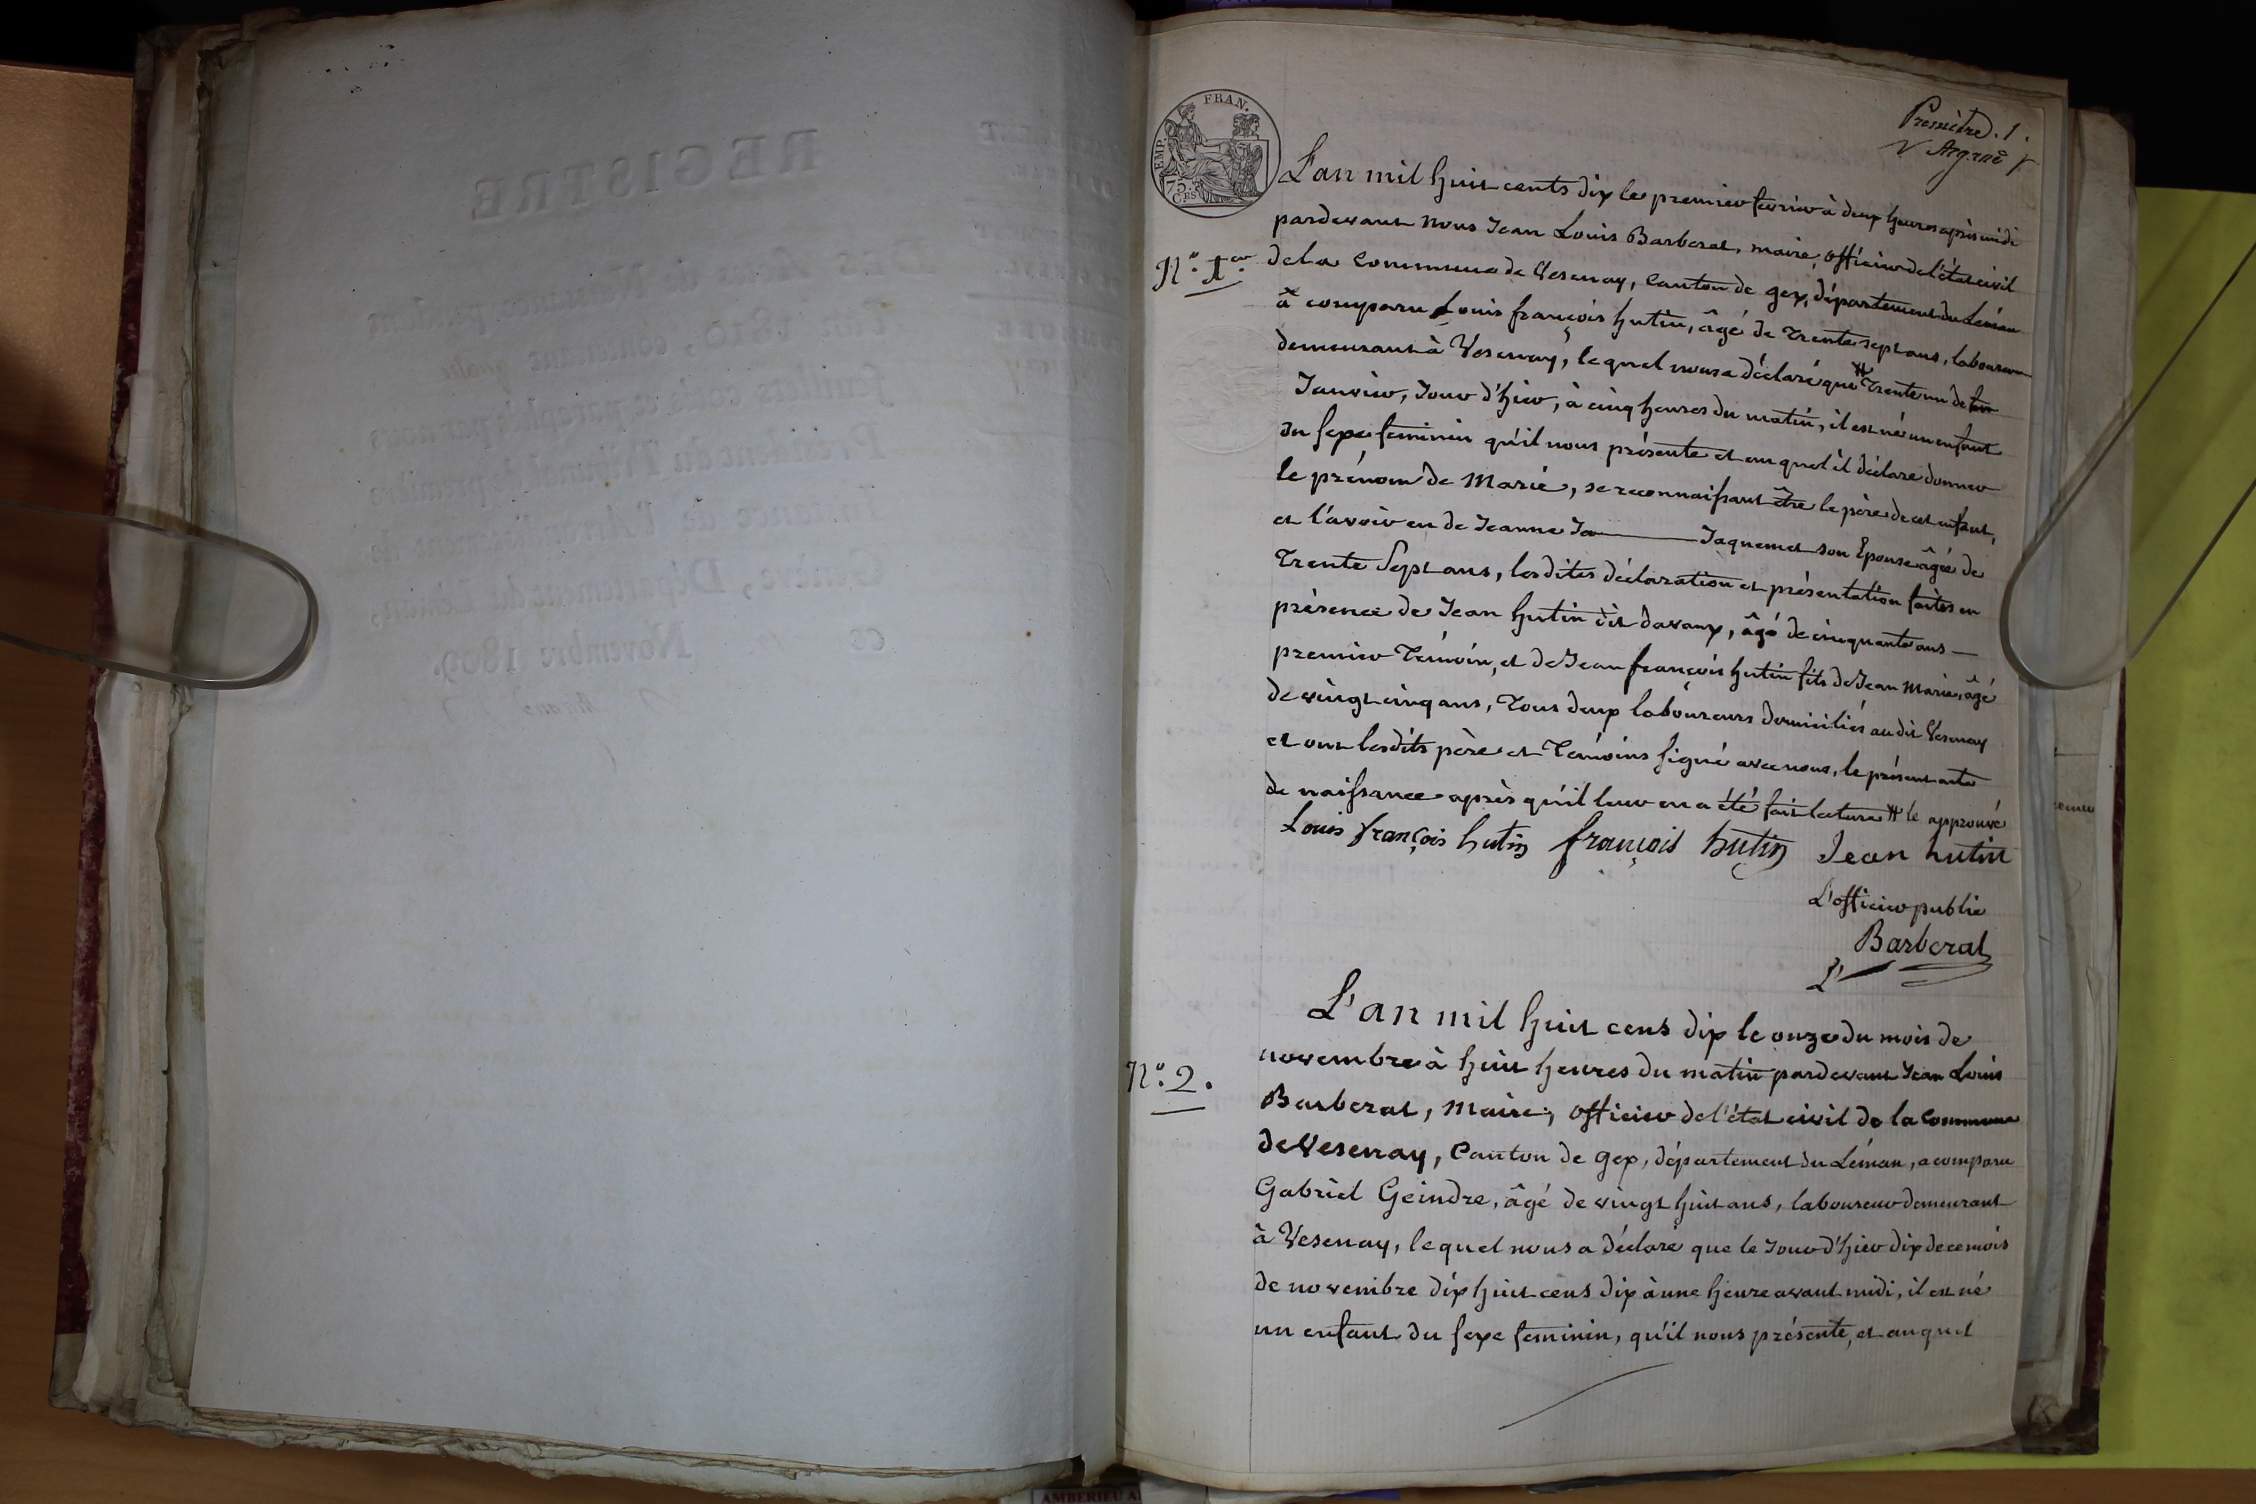 REGISTRE
1810, contenant quatre
feuillets cotés et paraphés par nous
Président du Tribunal de première
Instance de l'Arrondissement de
Département du Léman,
Novembre 1809.
EMP. FRAN.
75. C.ES
Première. 1.
N.o 1er
L'an mil huit cents dix le premier fevrier à deux heures après midi
pardevant nous Jean Louis Barberat, maire, officier de l'état civil
de la commune de Vesenay, Canton de gex, département du Léman
à comparu Louis françois hutin, âgé de trente sept ans, laboureur
demeurant à Vesenay, lequel nous a déclaré que # trente un de
Janvier, Jour d'hier, à cinq heures du matin, il est né un enfant
du sexe feminin qu'il nous présente et auquel il déclare donner
le prénom de Marie, se reconnaissant être le père de cet enfant,
et l'avoir eu de Jeanne Ja——— Jaquemet son Epouse âgée de
trente Sept ans, lesdites déclaration et présentation faites en
présence de Jean hutin dit davaux, âgé de cinquante ans —
premier Témoin, et de Jean françois hutin fils de Jean Marie, âgé
de vingt cinq ans, Tous deux laboureurs domiciliés au dit Vesenay
et ont lesdits père et Témoins signé avec nous, le présent acte
de naissance après qu'il leur en a été fait lecture # le approuvé
Louis françois hutin françois hutin Jean hutin
L'officier public
Barberat
N.o 2.
L'an mil huit cens dix le onze du mois de
novembre à huit heures du matin pardevant Jean Louis
Barberat, Maire, officier de l'état civil de la Commune
de Vesenay, Canton de gex, département du Léman, a comparu
Gabriel Geindre, âgé de vingt huit ans, laboureur demeurant
à Vesenay, lequel nous a déclaré que le Jour d'hier dix de ce mois
de novembre dix huit cens dix à une heure avant midi, il est né
un enfant du sexe feminin, qu'il nous présente, et auquel